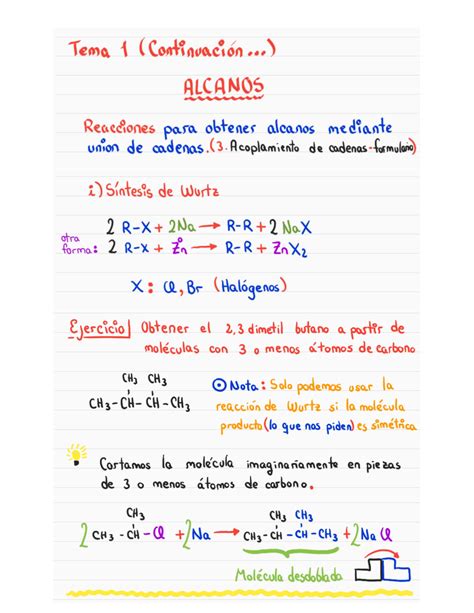 Tema 1 (Continuación...)
ALCANOS
Reacciones para obtener alcanos mediante
union de cadenas.(3. Acoplamiento de cadenas-formulario)
i) Síntesis de Wurtz
2 R-X + 2Na → R-R + 2 NaX
otra forma: 2 R-X + Zn° → R-R + ZnX₂
X : Cl, Br (Halógenos)
Ejercicio| Obtener el 2,3 dimetil butano a partir de
moléculas con 3 o menos átomos de carbono
CH₃ CH₃
CH₃-CH-CH-CH₃
Nota: Solo podemos usar la
reacción de Wurtz si la molécula
producto (lo que nos piden) es simétrica
Cortamos la molécula imaginariamente en piezas
de 3 o menos átomos de carbono.
CH₃ CH₃ CH₃
2 CH₃-CH-Cl + 2Na → CH₃-CH-CH-CH₃ + 2NaCl
Molécula desdoblada